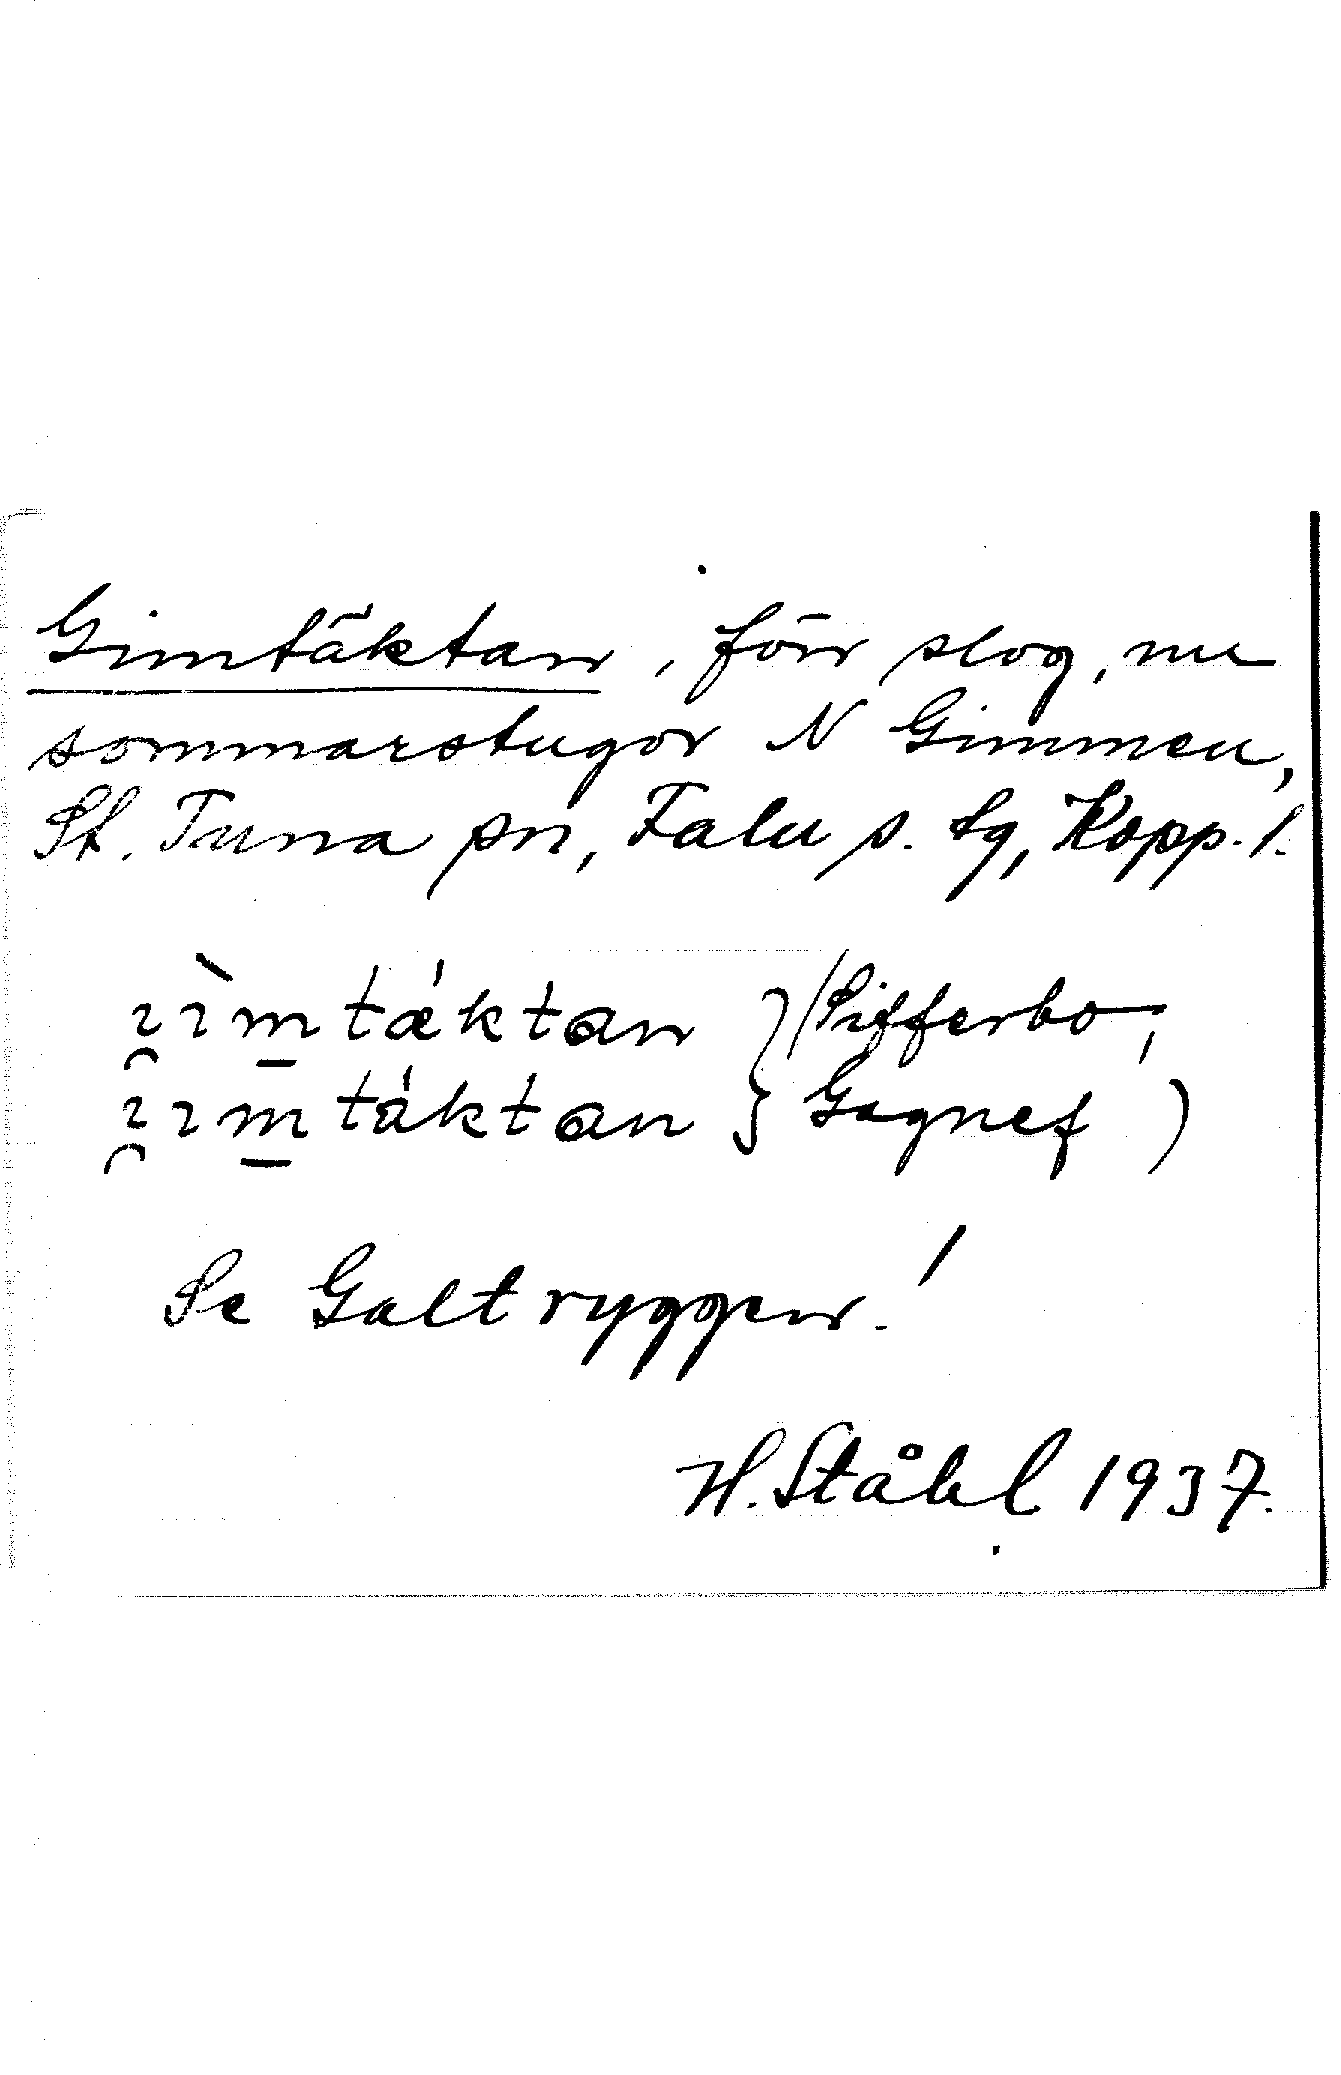 Gimtäktan, förr slog, nu
sommarstugor N Gimmen,
St. Tuna sn, Falu s. tg, Kopp. l.
ı̯ı̀m̲tǽktan } (Sifferbo,
ı̯ım̲táktan } Gagnef )
Se Galtryggen!
H. Ståhl 1937.